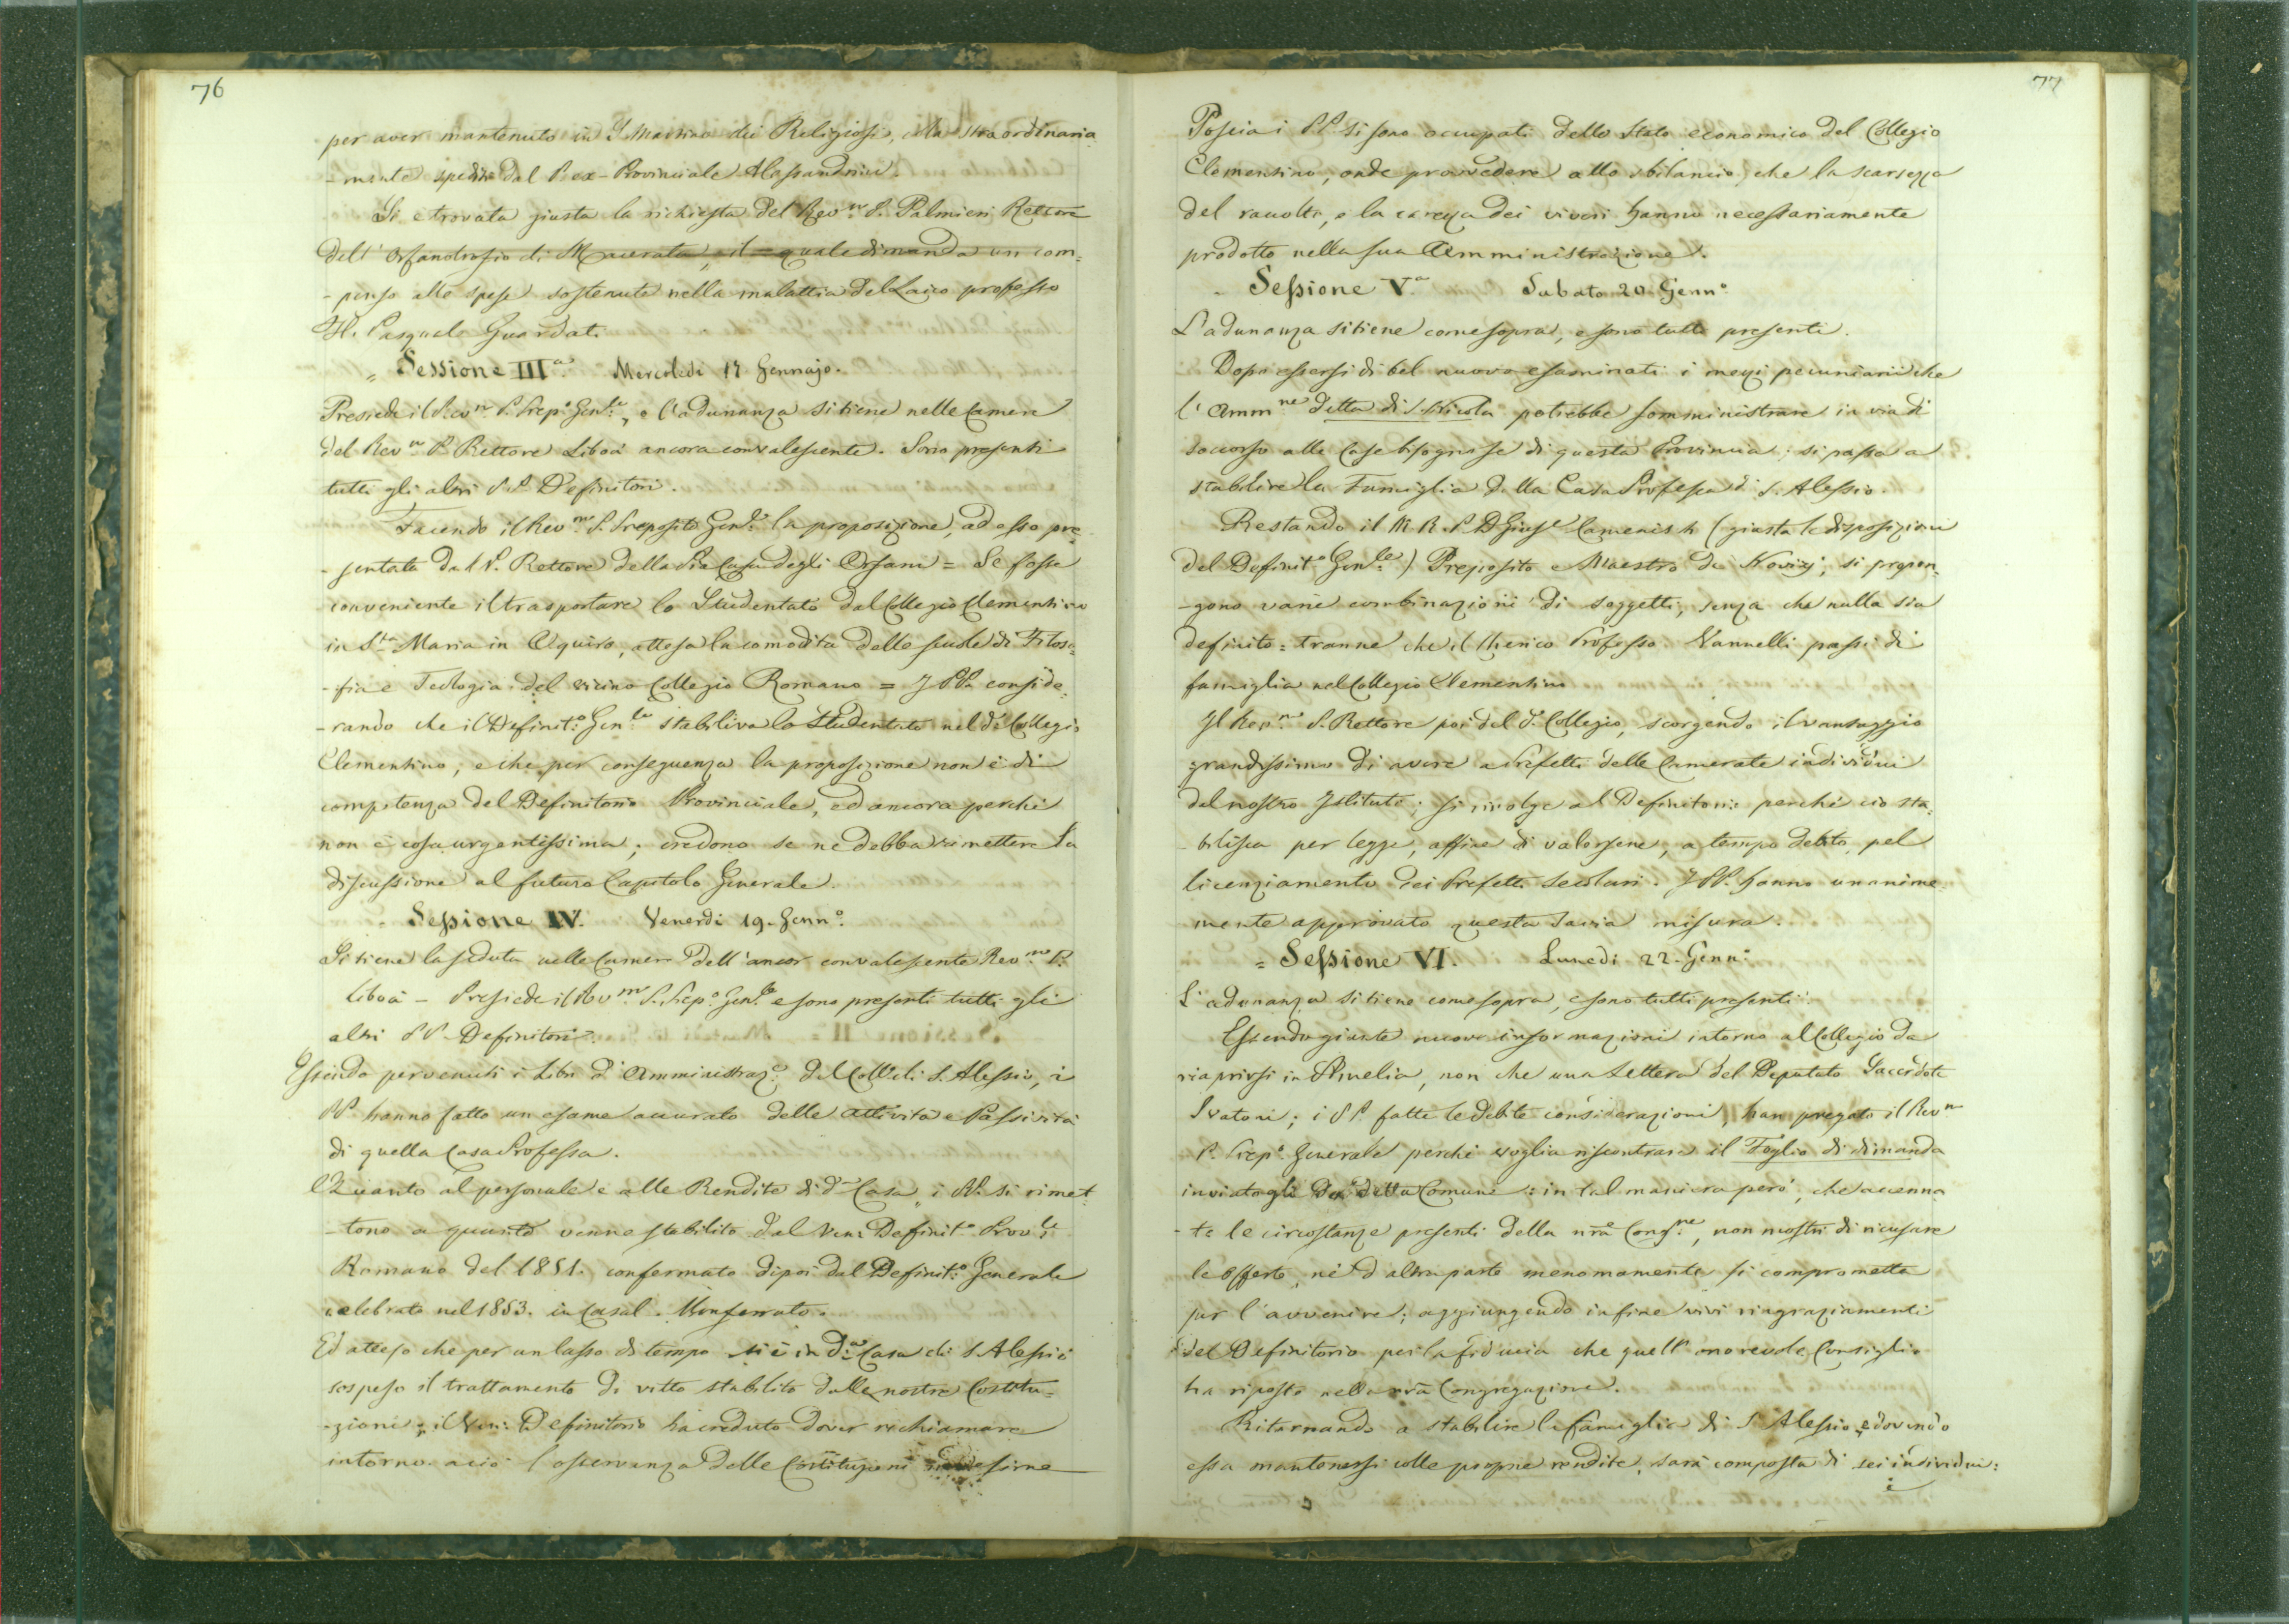 76
per aver mantenuto in S. Martino dei Religiosi, colà straordinaria
- mente spediti dal P. ex-Provinciale Alessandrini.
Si è trovata giusta la richiesta del Rev.mo P. Palmieri Rettore
dell' Orfanotrofio di Macerata, il quale dimanda un com=
- penso alle spese sostenute nella malattia del Laico professo
Fr. Pasquale Guardati.
= Sessione IIIa. Mercoledì 17 Gennajo.
Presiede il Rev.mo P. Prep.o Gen.le, e l'adunanza si tiene nelle Camere
del Rev.mo P. Rettore Libois ancora convalescente. Sono presenti
tutti gli altri PP. Definitori.
Facendo il Rev.mo P. Preposito Gen.le la proposizione, ad esso pre=
- sentata dal P. Rettore della Pia Casa degli Orfani = Se fosse
conveniente il trasportare lo Studentato dal Collegio Clementino
in S.ta Maria in Aquiro, attesa la comodità delle scuole di Filoso=
- fia e Teologia del vicino Collegio Romano = I PP. conside=
- rando che il Definit.o Gen.le stabiliva lo Studentato nel d.o Collegio
Clementino, e che per conseguenza la proposizione non è di
competenza del Definitorio Provinciale, ed ancora perchè
non è cosa urgentissima; credono se ne debba rimettere la
discussione al futuro Capitolo Generale.
= Sessione IV. Venerdì 19. Genn.o
Si tiene la seduta nelle Camere dell'ancor convalescente Rev.mo P.
Libois - Presiede il Rev.mo P. Prep.o Gen.le e sono presenti tutti gli
altri PP. Definitori.
Essendo pervenuti i Libri d'Amministraz.e del Coll.o di S. Alessio, i
PP. hanno fatto un esame accurato delle Attività e Passività
di quella Casa Professa.
Quanto al personale e alle Rendite di d.a Casa, i PP. si rimet=
- tono a quanto venne stabilito dal Ven: Definit.o Prov.le
Romano del 1851. confermato dipoi dal Definit.o Generale
celebrato nel 1853. in Casal. Monferrato.
Ed atteso che per un lasso di tempo si è in d.a Casa di S. Alessio
sospeso il trattamento di vitto stabilito dalle nostre Costitu=
- zioni; il Ven: Definitorio ha creduto dover richiamare
intorno a ciò l'osservanza delle Costituzioni medesime
77
Poscia i PP. si sono occupati dello stato economico del Collegio
Clementino, onde provvedere allo sbilancio, che la scarsezza
del raccolto, e la carezza dei viveri hanno necessariamente
prodotto nella sua Amministrazione.
= Sessione V.a Sabato 20 Genn.o
L'adunanza si tiene come sopra, e sono tutti presenti.
Dopo essersi di bel nuovo esaminati i mezzi pecuniarii che
l'Amm.ne detta di S. Nicola potrebbe somministrare in via di
soccorso alle Case bisognose di questa Provincia; si passa a
stabilire la Famiglia della Casa Professa di S. Alessio.
Restando il M. R. P. D. Gius.e Camenisch (giusta le disposizioni
del Definit.o Gen.le) Preposito e Maestro de' Novizj, si propon=
- gono varie combinazioni di soggetti, senza che nulla sia
definito = tranne che il Chierico Professo Vannelli passi di
famiglia nel Collegio Clementino
Il Rev.mo P. Rettore poi del d.o Collegio, scorgendo il vantaggio
grandissimo di avere a Prefetti delle Camerate individui
del nostro Istituto; si rivolge al Definitorio perchè ciò sta=
- bilisca per legge, affine di valersene, a tempo debito, pel
licenziamento dei Prefetti secolari. I PP. hanno unanime
mente approvato questa savia misura.
= Sessione VI. Lunedì 22. Genn.o
L'adunanza si tiene come sopra, e sono tutti presenti.
Essendo giunte nuove informazioni intorno al Collegio da
riaprirsi in Amelia, non che una Lettera del Deputato Sacerdote
Svatori; i PP. fatte le debite considerazioni, han pregato il Rev.mo
P. Prep.o Generale perchè voglia riscontrare il Foglio di dimanda
inviatogli da detta Comune: in tal maniera però, che accenna
- te le circostanze presenti della nra Cong.ne, non mostri di ricusare
le offerte, nè d'altra parte menomamente si comprometta
per l'avvenire; aggiungendo infine vivi ringraziamenti
del Definitorio per la fiducia che quell'onorevole Consiglio
ha riposto nella nra Congregazione.
Ritornando a stabilire la famiglia di S. Alessio, e dovendo
essa mantenersi colle proprie rendite, sarà composta di sei individui:
i